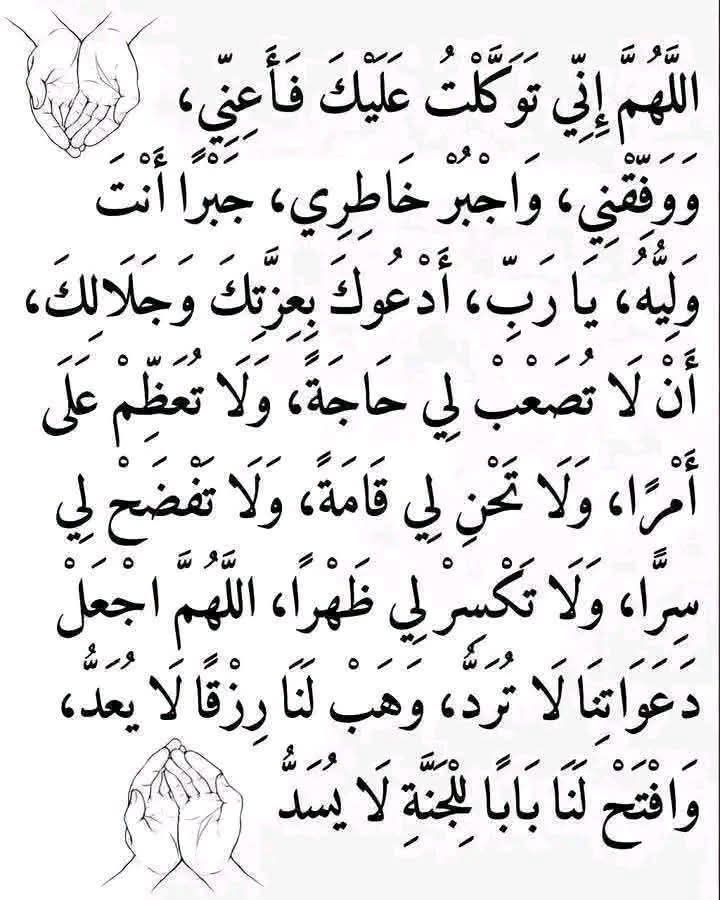 اللَّهُمَّ إِنِّي تَوَكَّلْتُ عَلَيْكَ فَأَعِنِّي،
وَوَفِّقْنِي، وَاجْبُرْ خَاطِرِي، جَبْرًا أَنْتَ
وَلِيُّهُ، يَا رَبِّ، أَدْعُوكَ بِعِزَّتِكَ وَجَلَالِكَ،
أَنْ لَا تُصَعْبْ لِي حَاجَةً، وَلَا تُعَظِّمْ عَلَى
أَمْرًا، وَلَا تَحْنِ لِي قَامَةً، وَلَا تَفْضَحْ لِي
سِرًّا، وَلَا تَكْسِرْ لِي ظَهْرًا، اللَّهُمَّ اجْعَلْ
دَعَوَاتِنَا لَا تُرَدُّ، وَهَبْ لَنَا رِزْقًا لَا يُعَدُّ،
وَافْتَحْ لَنَا بَابًا لِلْجَنَّةِ لَا يُسَدُّ